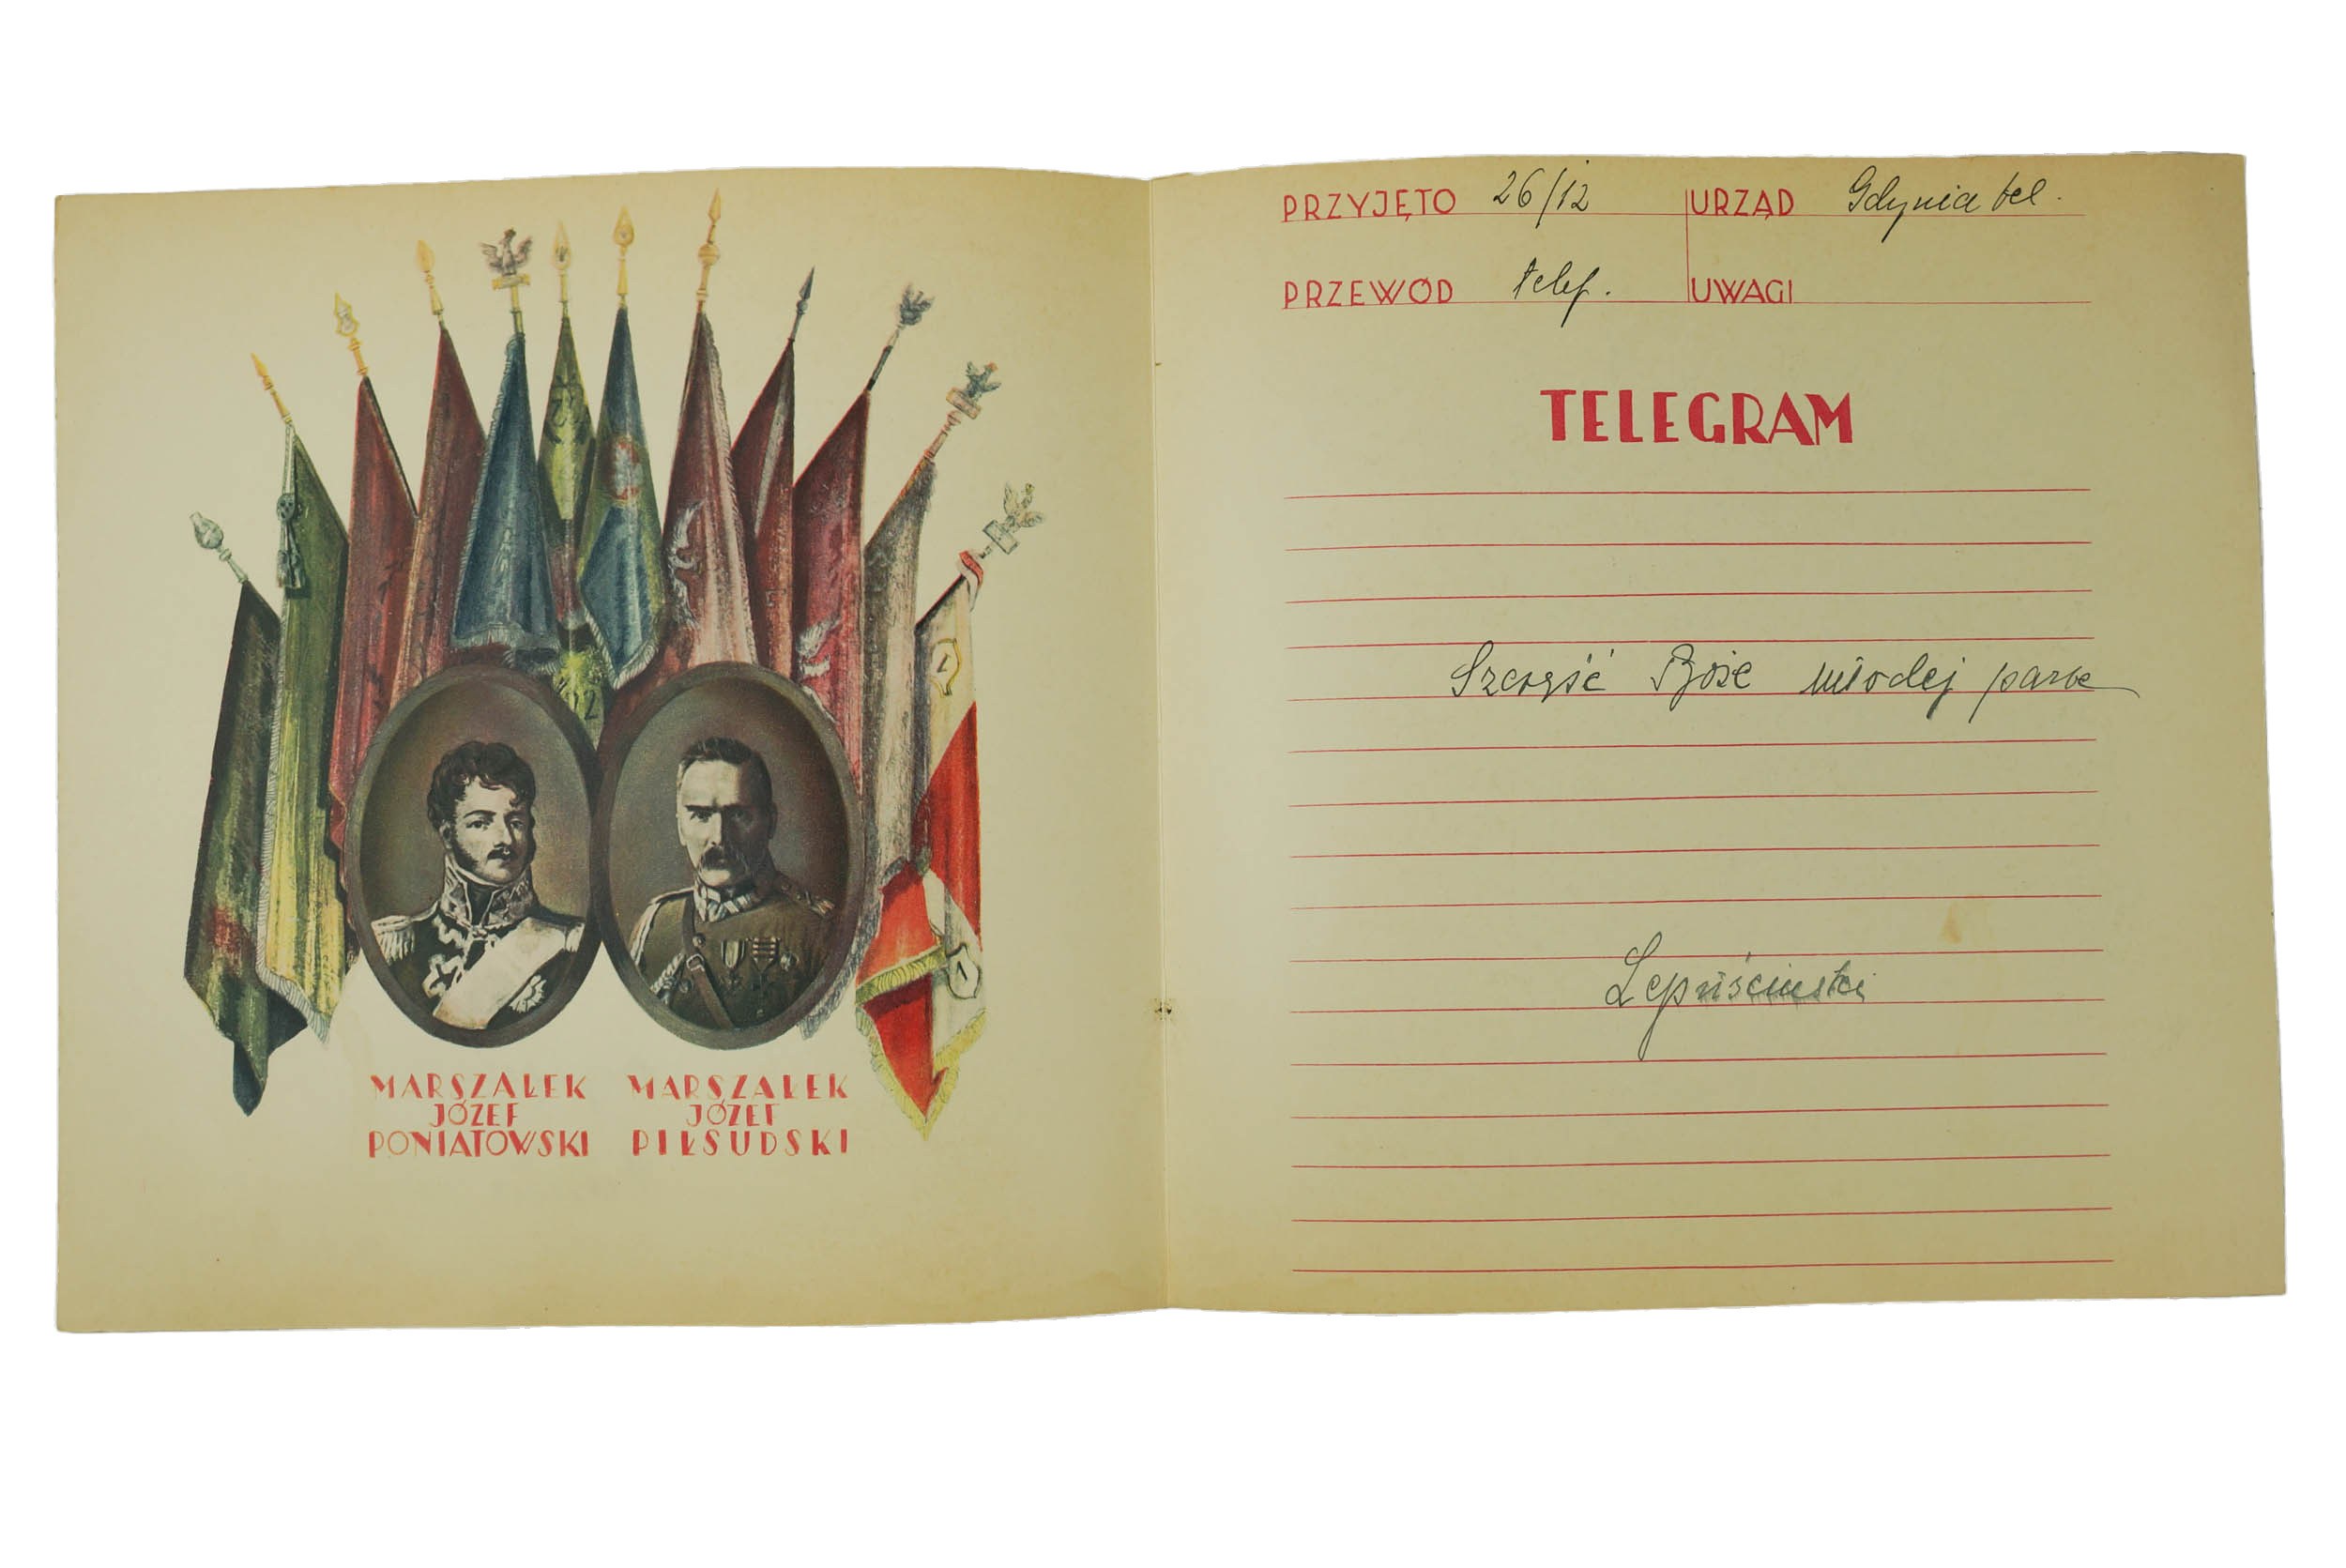 MARSZAŁEK MARSZAŁEK
JÓZEF JÓZEF
PONIATOWSKI PIŁSUDSKI
PRZYJĘTO 26/12 URZĄD Gdynia tel.
PRZEWÓD telef. UWAGI
TELEGRAM
Szczęść Boże młodej parze